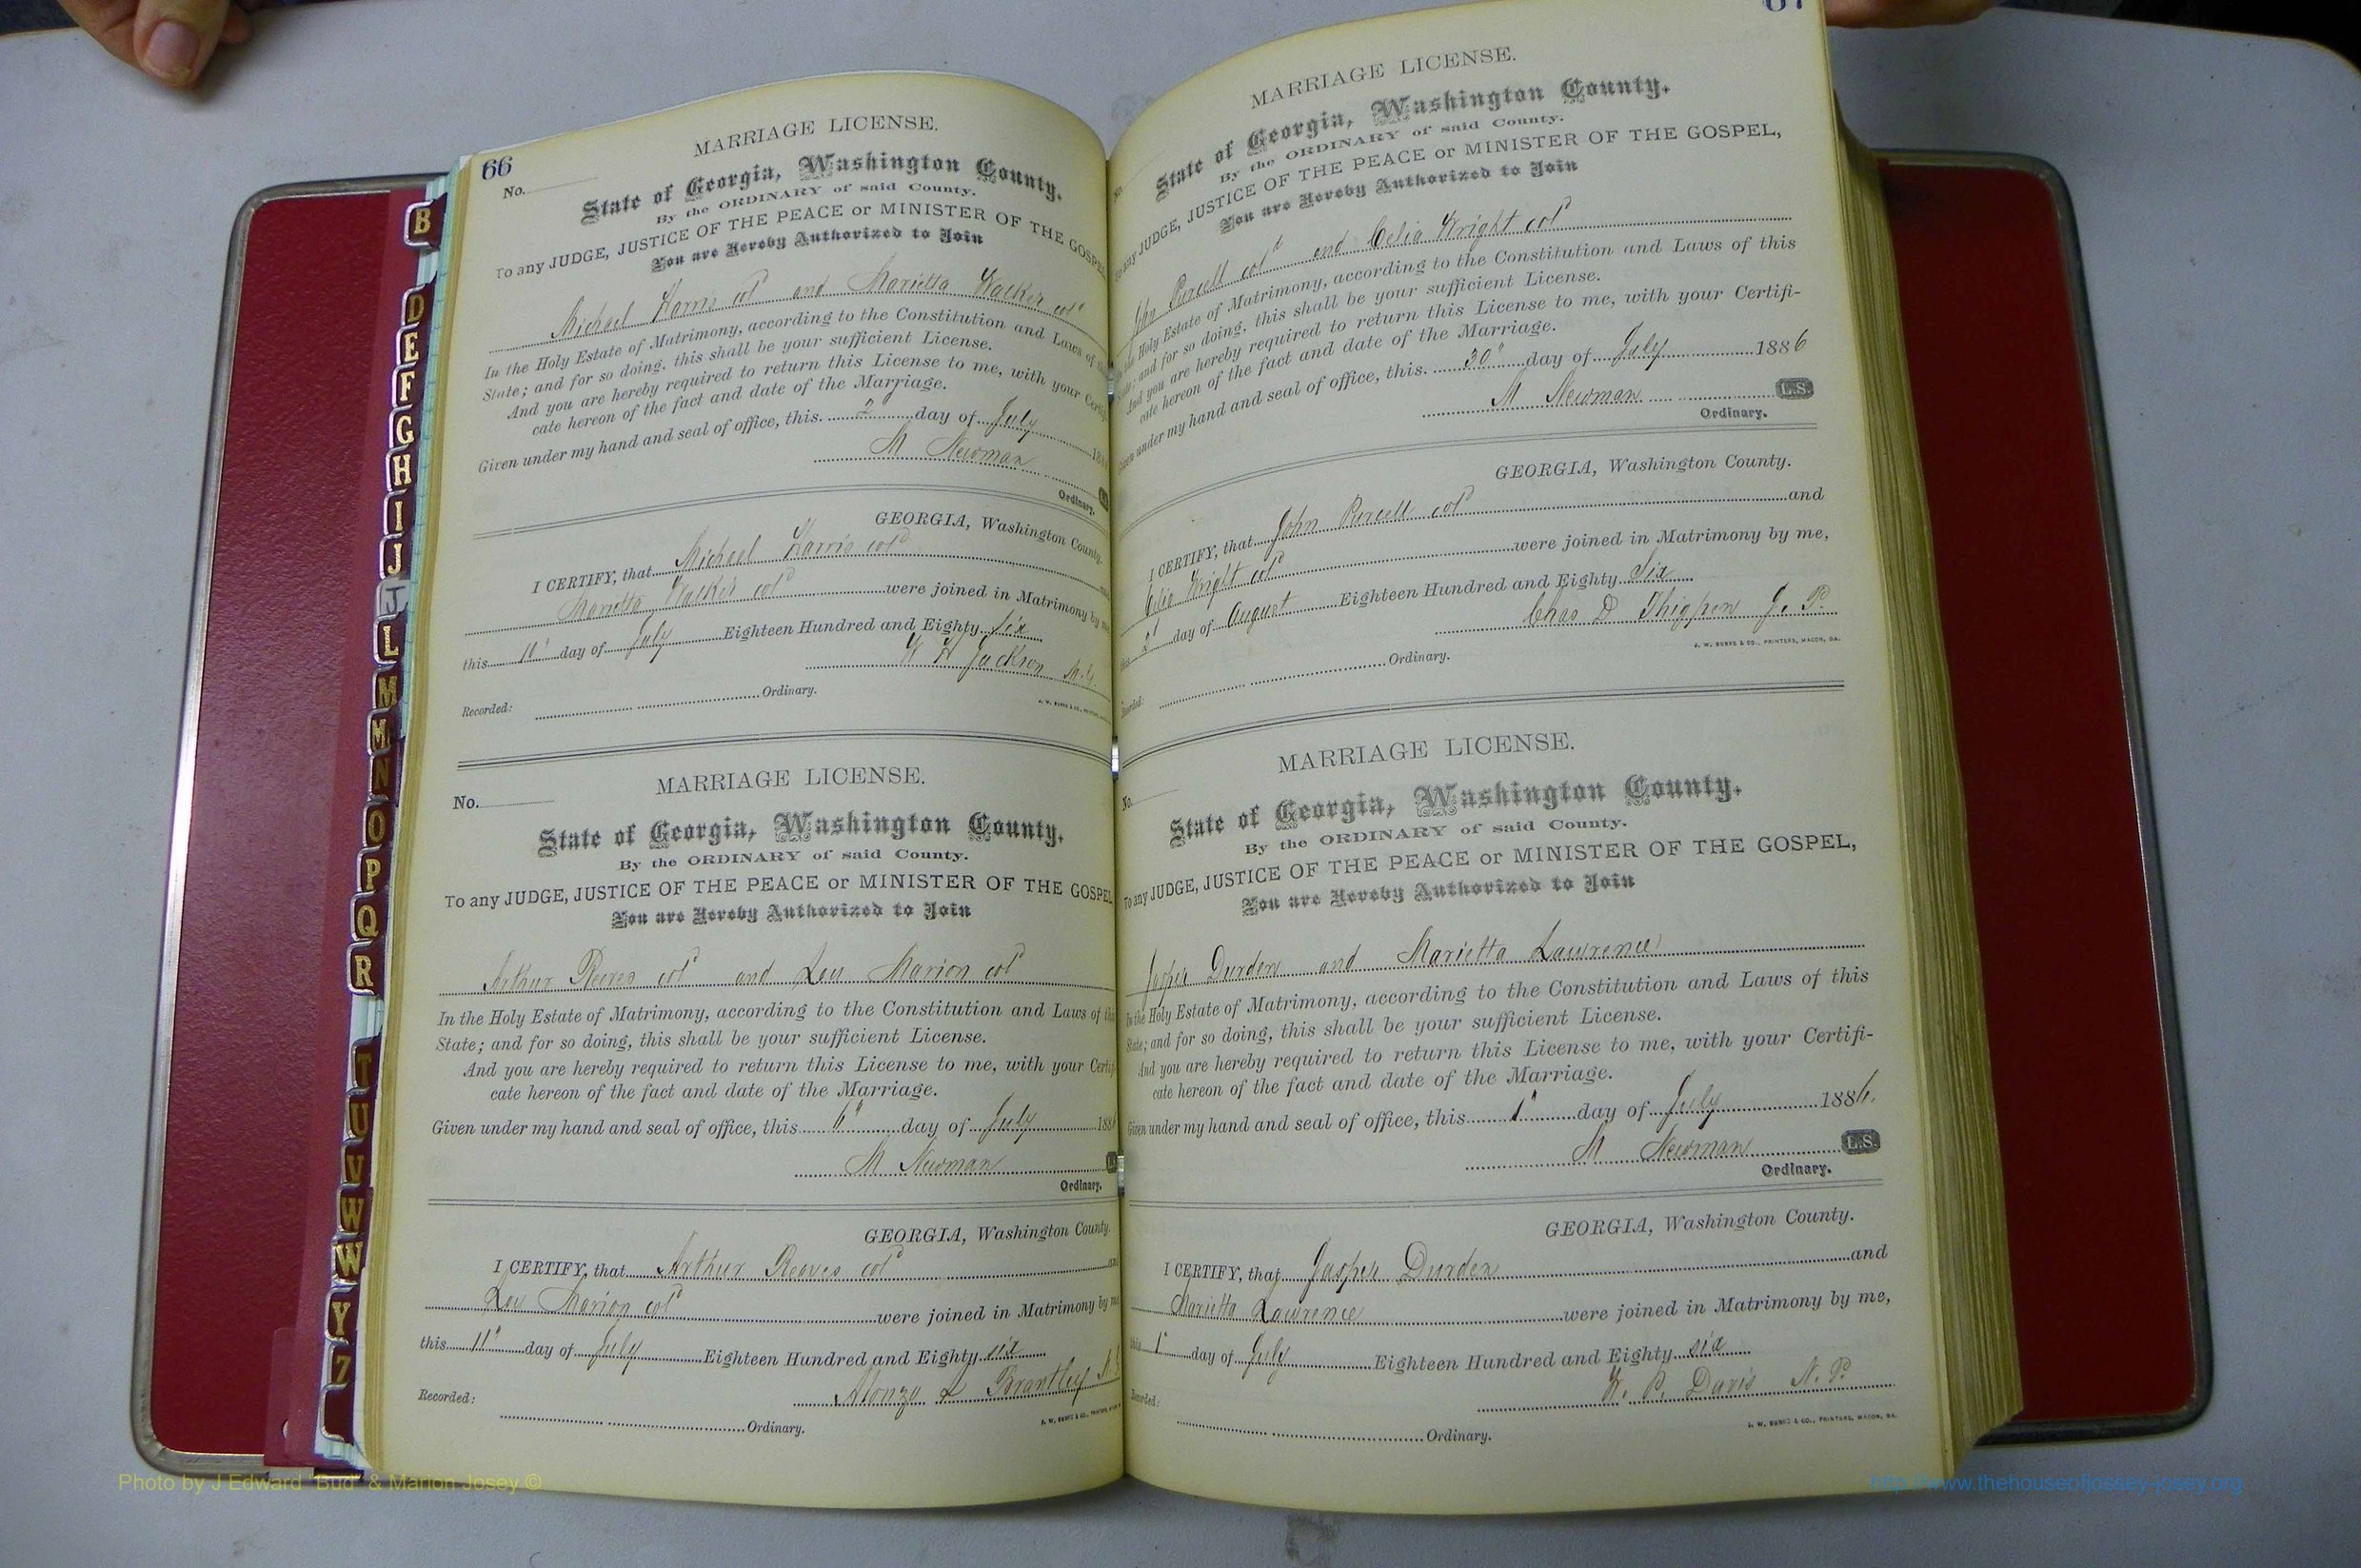 66
MARRIAGE LICENSE.
No.
State of Georgia, Washington County.
By the ORDINARY of said County.
To any JUDGE, JUSTICE OF THE PEACE or MINISTER OF THE GOSPEL
You are Hereby Authorized to Join
Michael Harris col'd and Marietta Walker col'd
In the Holy Estate of Matrimony, according to the Constitution and Laws of
State; and for so doing, this shall be your sufficient License.
And you are hereby required to return this License to me, with your Certifi
cate hereon of the fact and date of the Marriage.
Given under my hand and seal of office, this 2 day of July 188
M Newman
Ordinary.
GEORGIA, Washington County.
I CERTIFY, that Michael Harris col'd
Marietta Walker col'd were joined in Matrimony by me
this 10" day of July Eighteen Hundred and Eighty six
W H Jackson M.G.
Recorded: Ordinary.
J. W. BURKE & CO., PRINTERS,
MARRIAGE LICENSE.
No.
State of Georgia, Washington County.
By the ORDINARY of said County.
To any JUDGE, JUSTICE OF THE PEACE or MINISTER OF THE GOSPEL
You are Hereby Authorized to Join
Arthur Reeves col'd and Lou Marion col'd
In the Holy Estate of Matrimony, according to the Constitution and Laws of this
State; and for so doing, this shall be your sufficient License.
And you are hereby required to return this License to me, with your Certifi
cate hereon of the fact and date of the Marriage.
Given under my hand and seal of office, this 6" day of July 188
M Newman
Ordinary.
GEORGIA, Washington County.
I CERTIFY, that Arthur Reeves col'd
Lou Marion col'd were joined in Matrimony by me
this 11" day of July Eighteen Hundred and Eighty six
Alonzo L Brantley
Recorded: Ordinary.
J. W. BURKE & CO., PRINTERS,
67
MARRIAGE LICENSE.
No.
State of Georgia, Washington County.
By the ORDINARY of said County.
To any JUDGE, JUSTICE OF THE PEACE or MINISTER OF THE GOSPEL,
You are Hereby Authorized to Join
John Purcell col'd and Celia Wright col'd
In the Holy Estate of Matrimony, according to the Constitution and Laws of this
State; and for so doing, this shall be your sufficient License.
And you are hereby required to return this License to me, with your Certifi-
cate hereon of the fact and date of the Marriage.
Given under my hand and seal of office, this 30" day of July 1886
M Newman L.S.
Ordinary.
GEORGIA, Washington County.
I CERTIFY, that John Purcell col'd and
Celia Wright col'd were joined in Matrimony by me,
this 2d day of August Eighteen Hundred and Eighty Six
Chas D Thigpen J. P.
Recorded: Ordinary.
J. W. BURKE & CO., PRINTERS, MACON, GA.
MARRIAGE LICENSE.
No.
State of Georgia, Washington County.
By the ORDINARY of said County.
To any JUDGE, JUSTICE OF THE PEACE or MINISTER OF THE GOSPEL,
You are Hereby Authorized to Join
Jasper Durden and Marietta Lawrence
In the Holy Estate of Matrimony, according to the Constitution and Laws of this
State; and for so doing, this shall be your sufficient License.
And you are hereby required to return this License to me, with your Certifi-
cate hereon of the fact and date of the Marriage.
Given under my hand and seal of office, this 1" day of July 1886.
M Newman L.S.
Ordinary.
GEORGIA, Washington County.
I CERTIFY, that Jasper Durden and
Marietta Lawrence were joined in Matrimony by me,
this 1" day of July Eighteen Hundred and Eighty six
W. P. Davis N. P.
Recorded: Ordinary.
J. W. BURKE & CO., PRINTERS, MACON, GA.
B
D
E
F
G
H
I
J
J
L
M
M
N
O
P
Q
R
T
U
V
W
W
Y
Z
Photo by J Edward "Bud" & Marion Josey ©
http://www.thehouseofjossey-josey.org